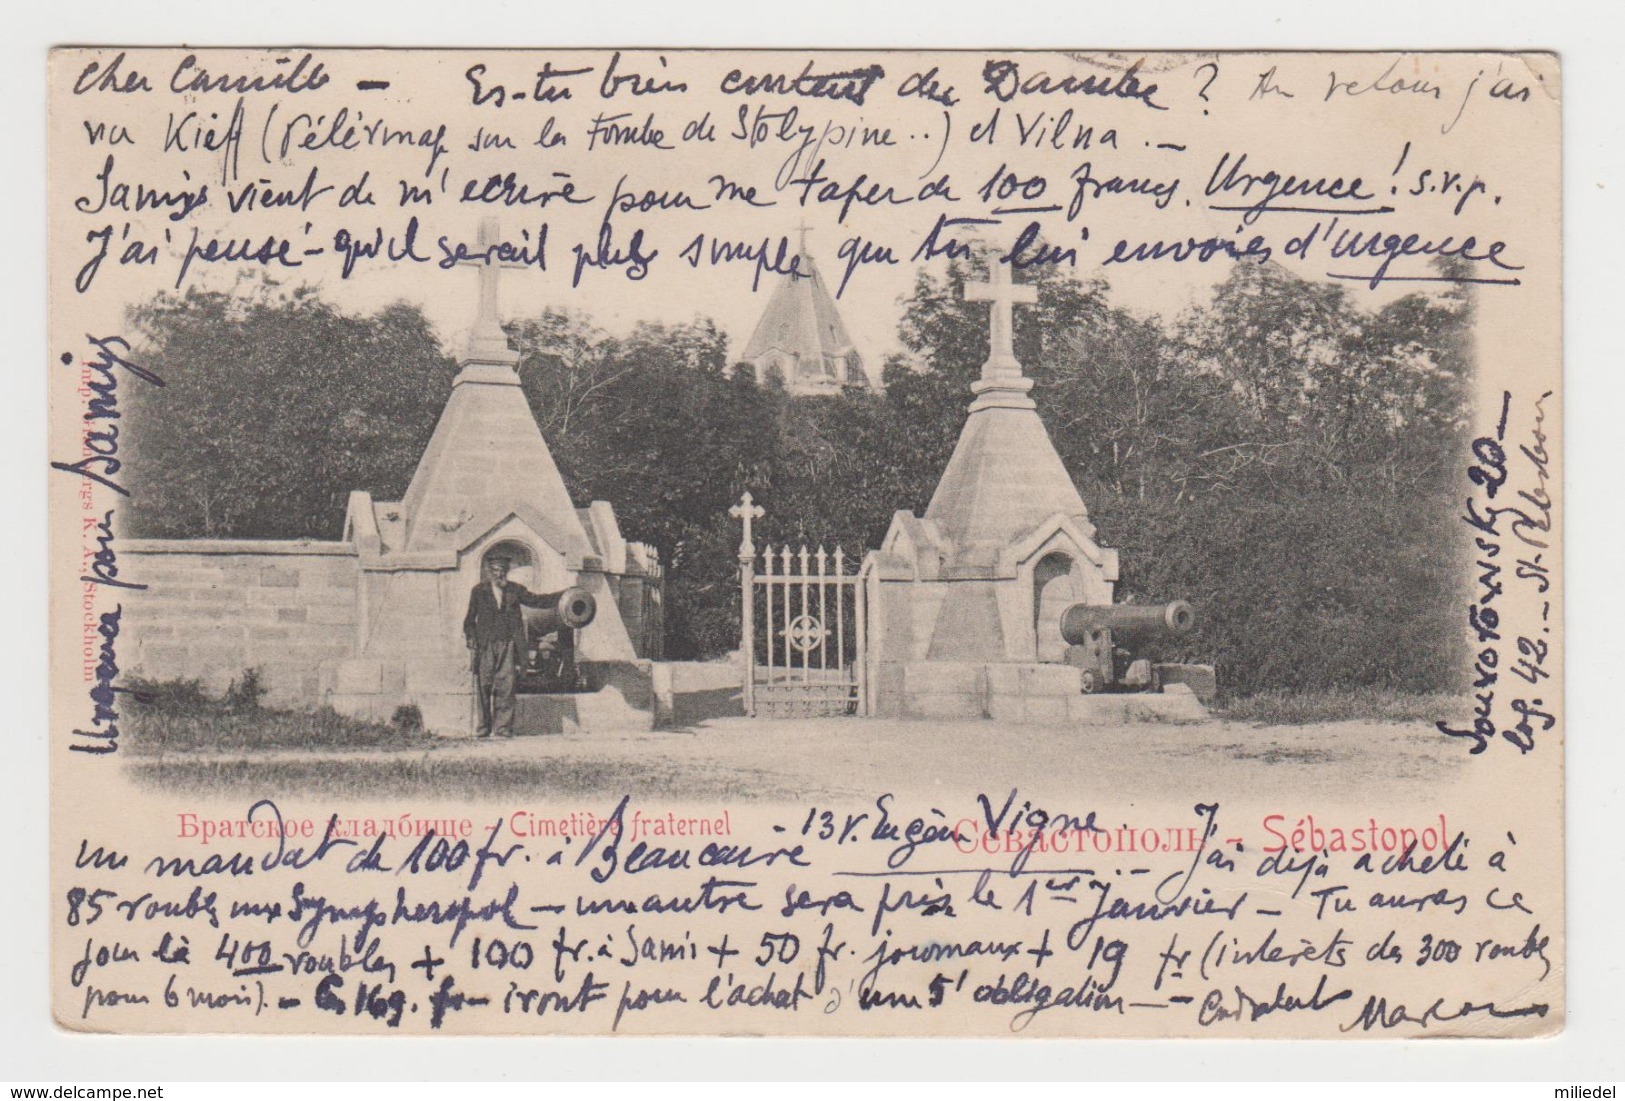 Cher Camille — Es-tu bien content du Danube ? Au retour j'ai
vu Kieff (Pélérinage sur la tombe de Stolypine ..) et Vilna . —
Samiys vient de m'écrire pour me taper de 100 francs. Urgence ! s.v.p.
J'ai pensé qu'il serait plus simple que tu lui envoies d'urgence
Братское кладбище - Cimetière fraternel
Севастополь - Sébastopol
un mandat de 100 fr. à Beaucaire - 13 r. Eugène Vigne . — J'ai déjà acheté à
85 roubles une Sympheropol — une autre sera prise le 1er Janvier — Tu auras ce
jour là 400 roubles + 100 fr. à Samis + 50 fr. journaux + 19 fr (intérêts des 300 roubles
pour 6 mois). — Ces 169. fr — iront pour l'achat d'une 5e obligation — — Cordialement
Urgence pour Samiys
K. A., Stockholm
Souvorovsky 20 —
log. 42. — St. Petersbourg
miledel
delcampe.net